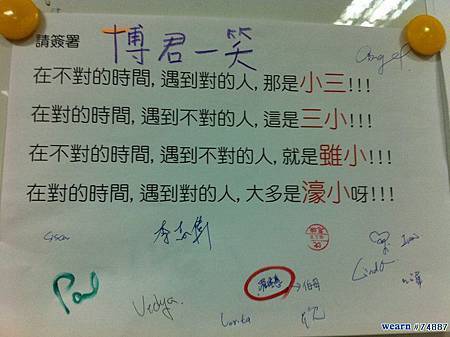 請簽署
博君一笑
在不對的時間,遇到對的人,那是小三!!!
在對的時間,遇到不對的人,這是三小!!!
在不對的時間,遇到不對的人,就是雖小!!!
在對的時間,遇到對的人,大多是濠小呀!!!
Paul
Vedya.
→伯母
Lonita
Linda
wearn #74887